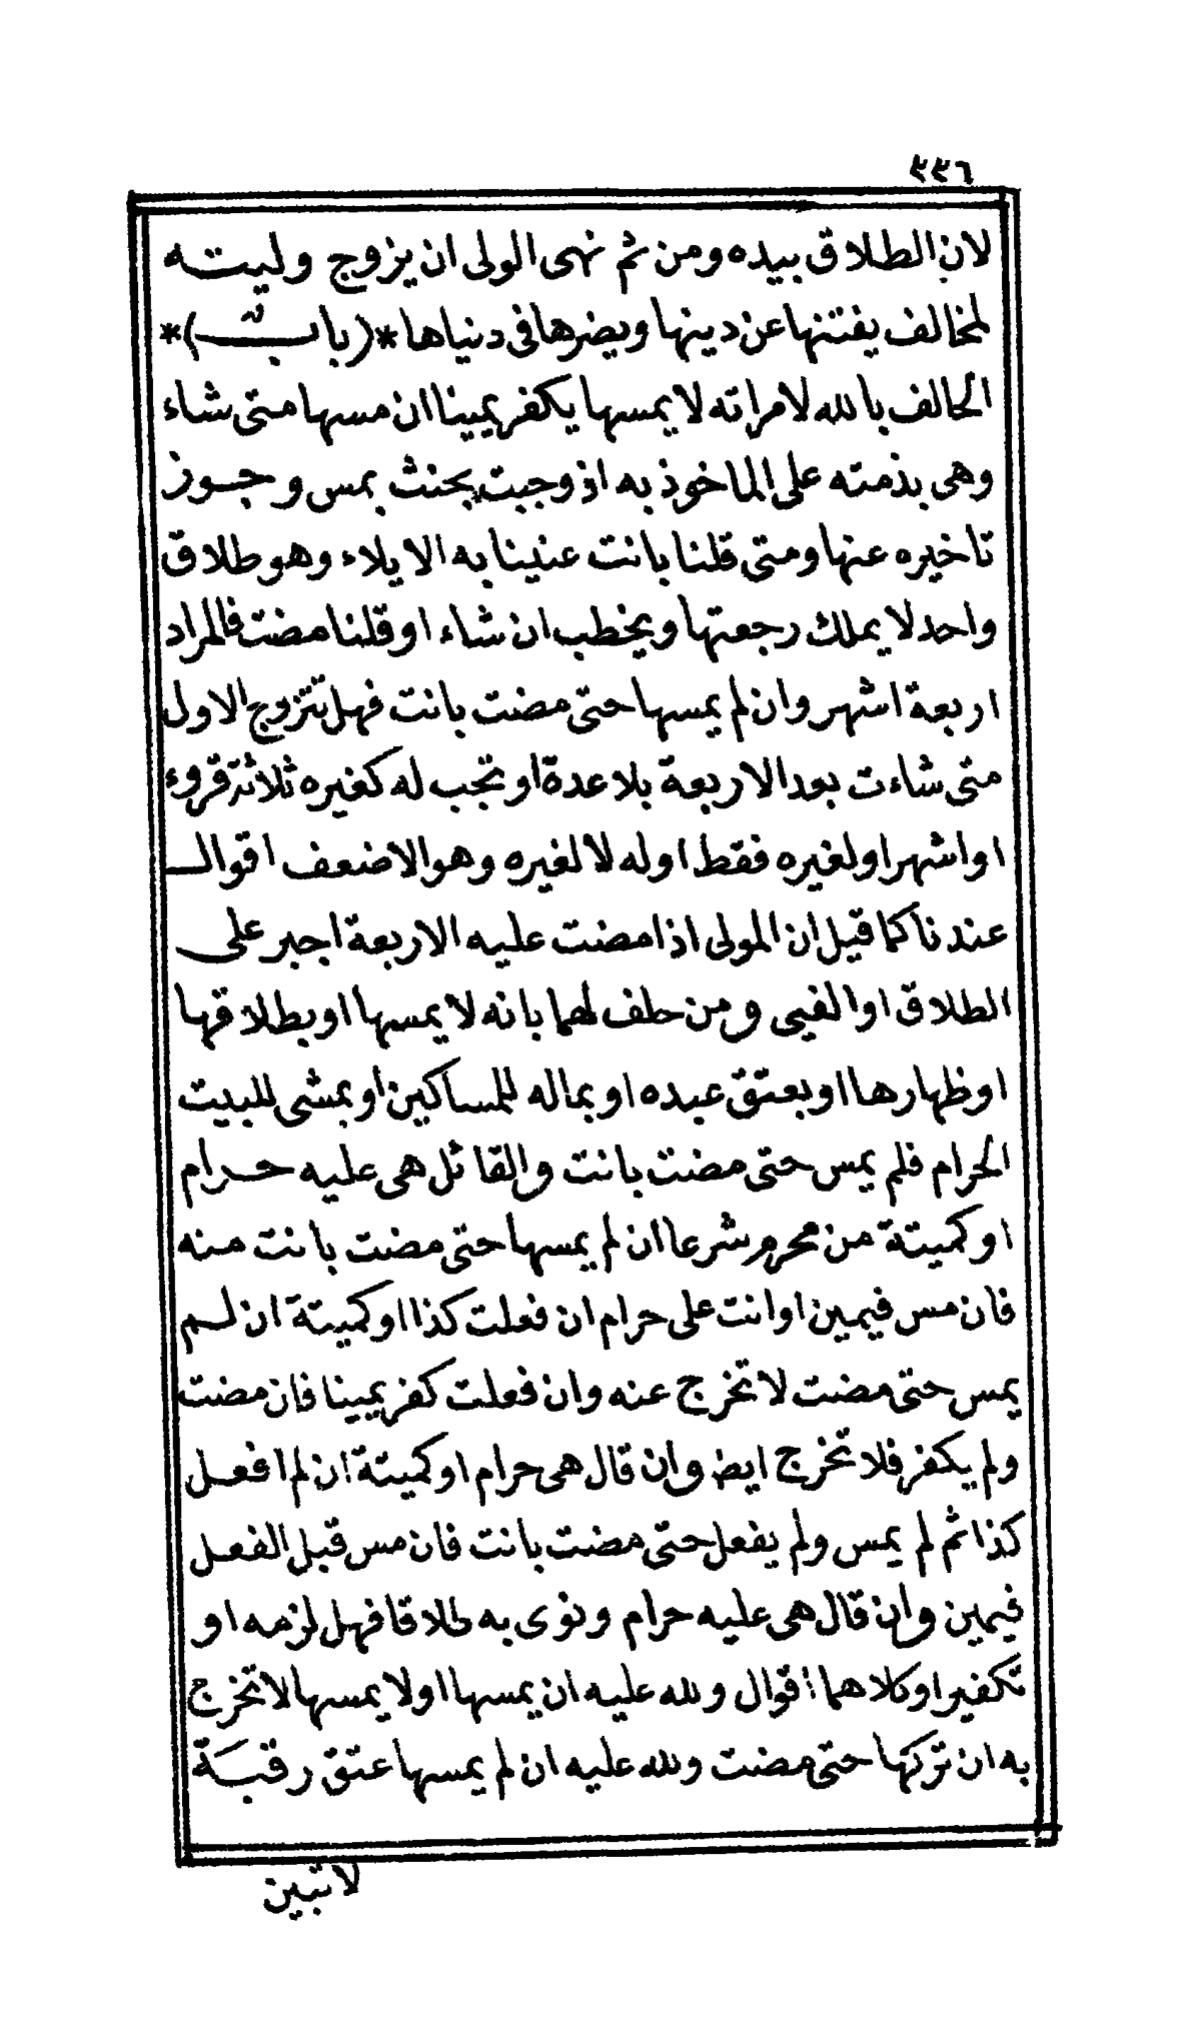 ٢٢٦
لان الطلاق بيده ومن ثم نهى الولى ان يزوج وليته
لمخالف يفتنها عن دينها ويضرها فى دنياها *(باب)*
الحالف بالله لامراته لا يمسها يكفر يمينا ان مسها متى شاء
وهى بذمته على الماخوذ به اذ وجبت بحنث بمس وجوز
تاخيره عنها ومتى قلنا بانت عنينا به الايلاء وهو طلاق
واحد لا يملك رجعتها ويخطب ان شاء او قلنا مضت فالمراد
اربعة اشهر وان لم يمسها حتى مضت بانت فهل تتزوج الاول
متى شاءت بعد الاربعة بلا عدة او تجب له كغيره ثلاثة قروء
او اشهر او لغيره فقط او له لا لغيره وهو الاضعف اقوال
عندنا كما قيل ان المولى اذا مضت عليه الاربعة اجبر على
الطلاق او الفيى ومن حلف لهما بانه لا يمسها او بطلاقها
او ظهارها او بعتق عبده او بماله للمساكين او بمشى للبيت
الحرام فلم يمس حتى مضت بانت والقائل هى عليه حرام
او كميتة من محرم شرعا ان لم يمسها حتى مضت بانت منه
فان مس فيمين او انت على حرام ان فعلت كذا او كميتة ان لم
يمس حتى مضت لا تخرج عنه وان فعلت كفر يمينا فان مضت
ولم يكفر فلا تخرج ايض وان قال هى حرام او كميتة ان لم افعل
كذا ثم لم يمس ولم يفعل حتى مضت بانت فان مس قبل الفعل
فيمين وان قال هى عليه حرام ونوى به طلاقا فهل لزمه او
تكفير او كلاهما اقوال ولله عليه ان يمسها او لا يمسها لا تخرج
به ان تركها حتى مضت ولله عليه ان لم يمسها عتق رقبة
لا تبين